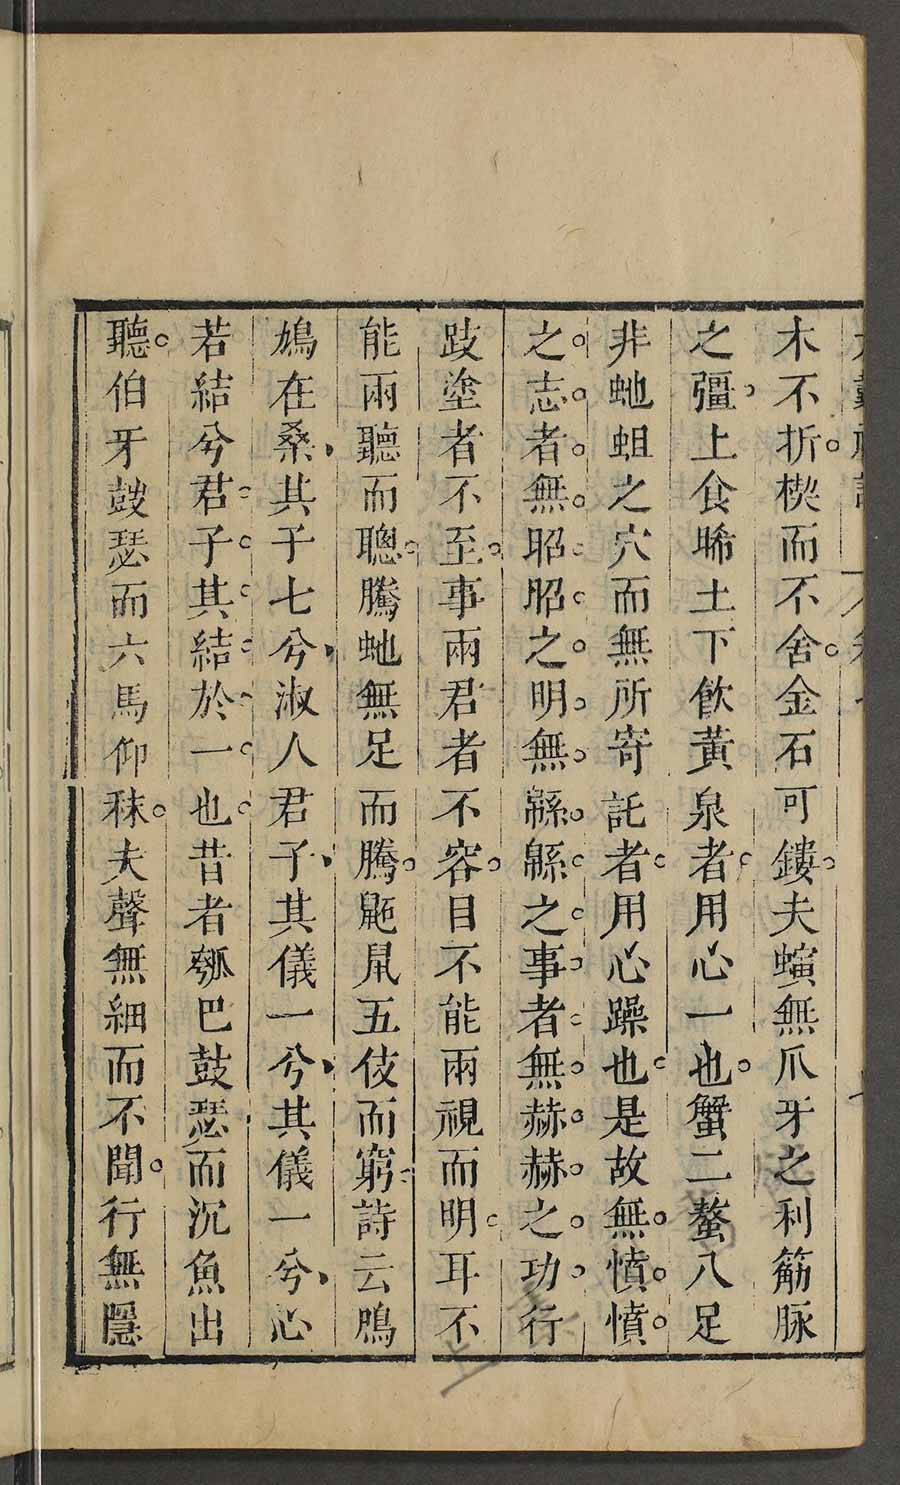 木不折楔而不舍金石可鏤夫螾無爪牙之利筋脉
之彊上食晞土下飲黃泉者用心一也蟹二螯八足
非虵蛆之穴而無所寄託者用心躁也是故無憤憤
之志者無昭昭之明無緜緜之事者無赫赫之功行
跂塗者不至事兩君者不容目不能兩視而明耳不
能兩聽而聰騰虵無足而騰鼫鼠五伎而窮詩云鳲
鳩在桑其子七兮淑人君子其儀一兮其儀一兮心
若結兮君子其結於一也昔者瓠巴鼓瑟而沉魚出
聽伯牙鼓瑟而六馬仰秣夫聲無細而不聞行無隱